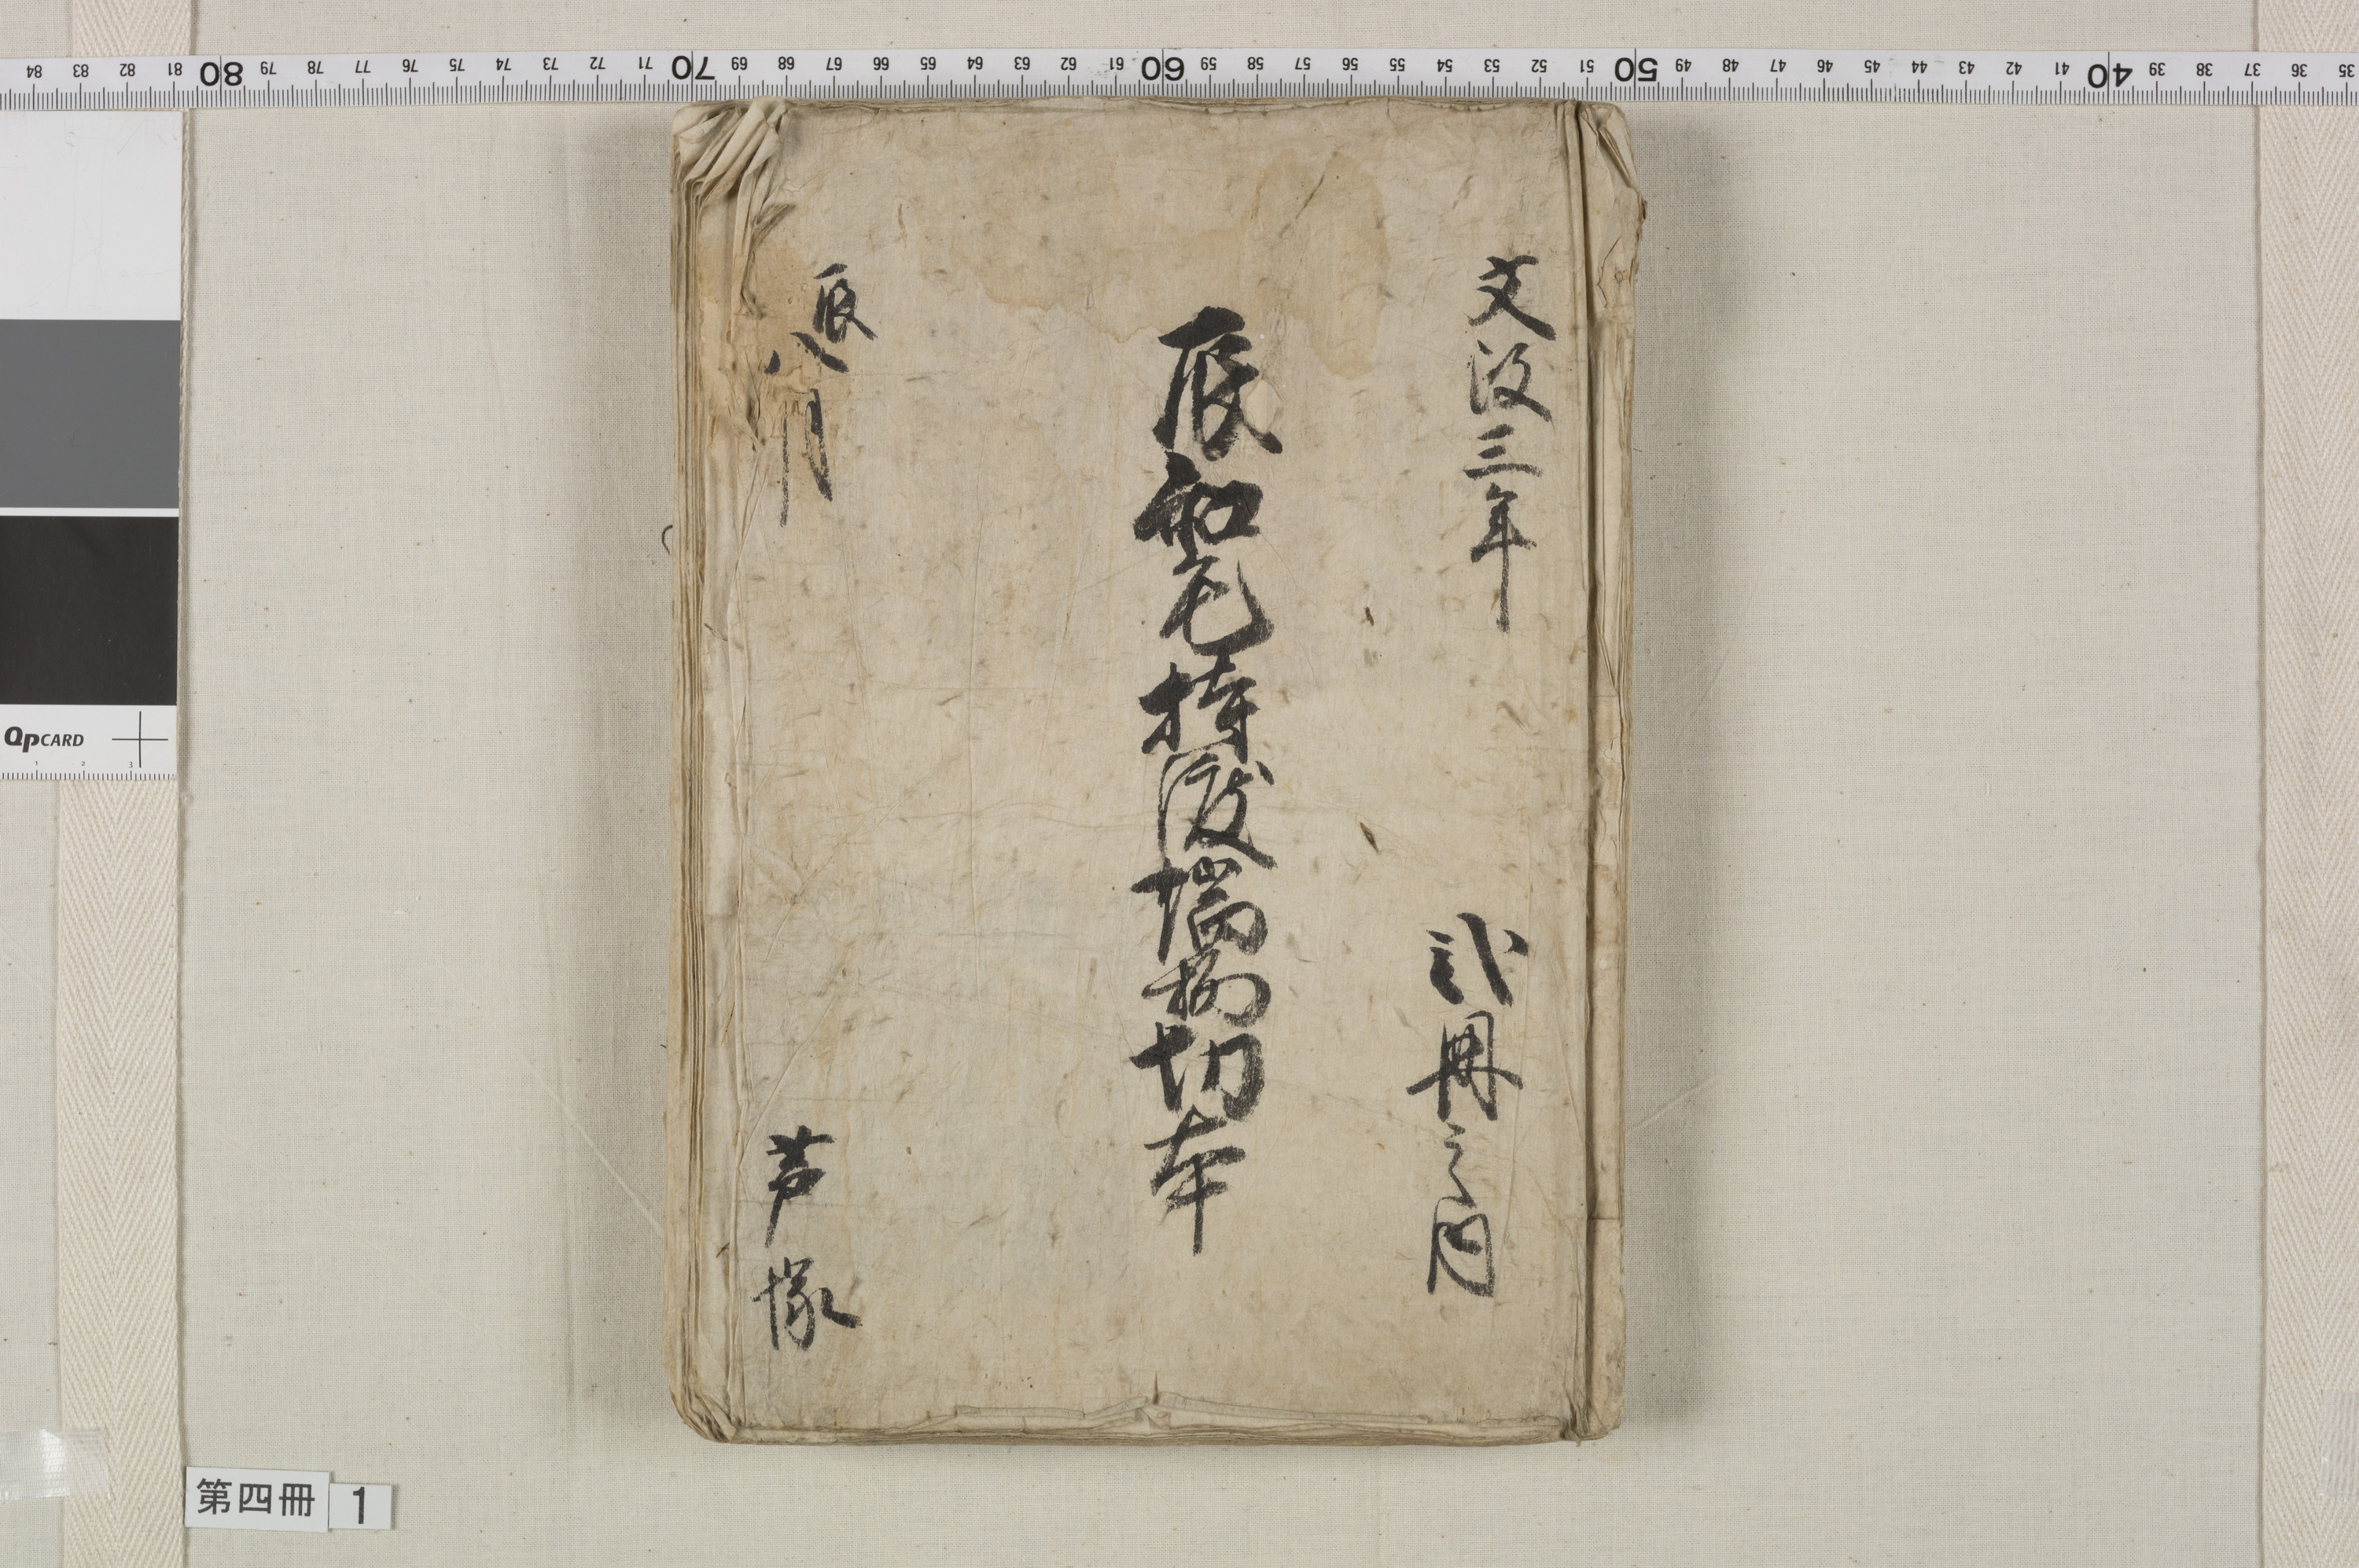 84 83 82 81 80 79 78 77 76 75 74 73 72 71 70 69 68 67 66 65 64 63 62 61 60 59 58 57 56 55 54 53 52 51 50 49 48 47 46 45 44 43 42 41 40 39 38 37 36 35
文政三年
弐冊之内
辰紅毛持渡端物切本
辰八月
芦塚
QpCARD
1 2 3
第四冊 1